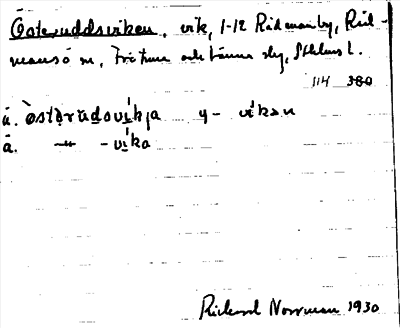 Österuddsviken, vik, 1-12 Ridmanby, Rid-
mansö sn, Frötuna och Länna slg, Sthlms l.
114 380
u. östərùdsvíkja y- vikən
ä. –"– -vika
Rickard Norrman 1930